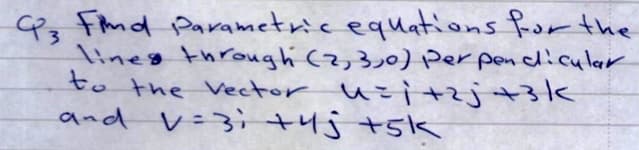 Q3 Find parametric equations for the
lines through (2,3,0) perpendicular
to the vector u=i+2j+3k
and v=3i+4j+5k